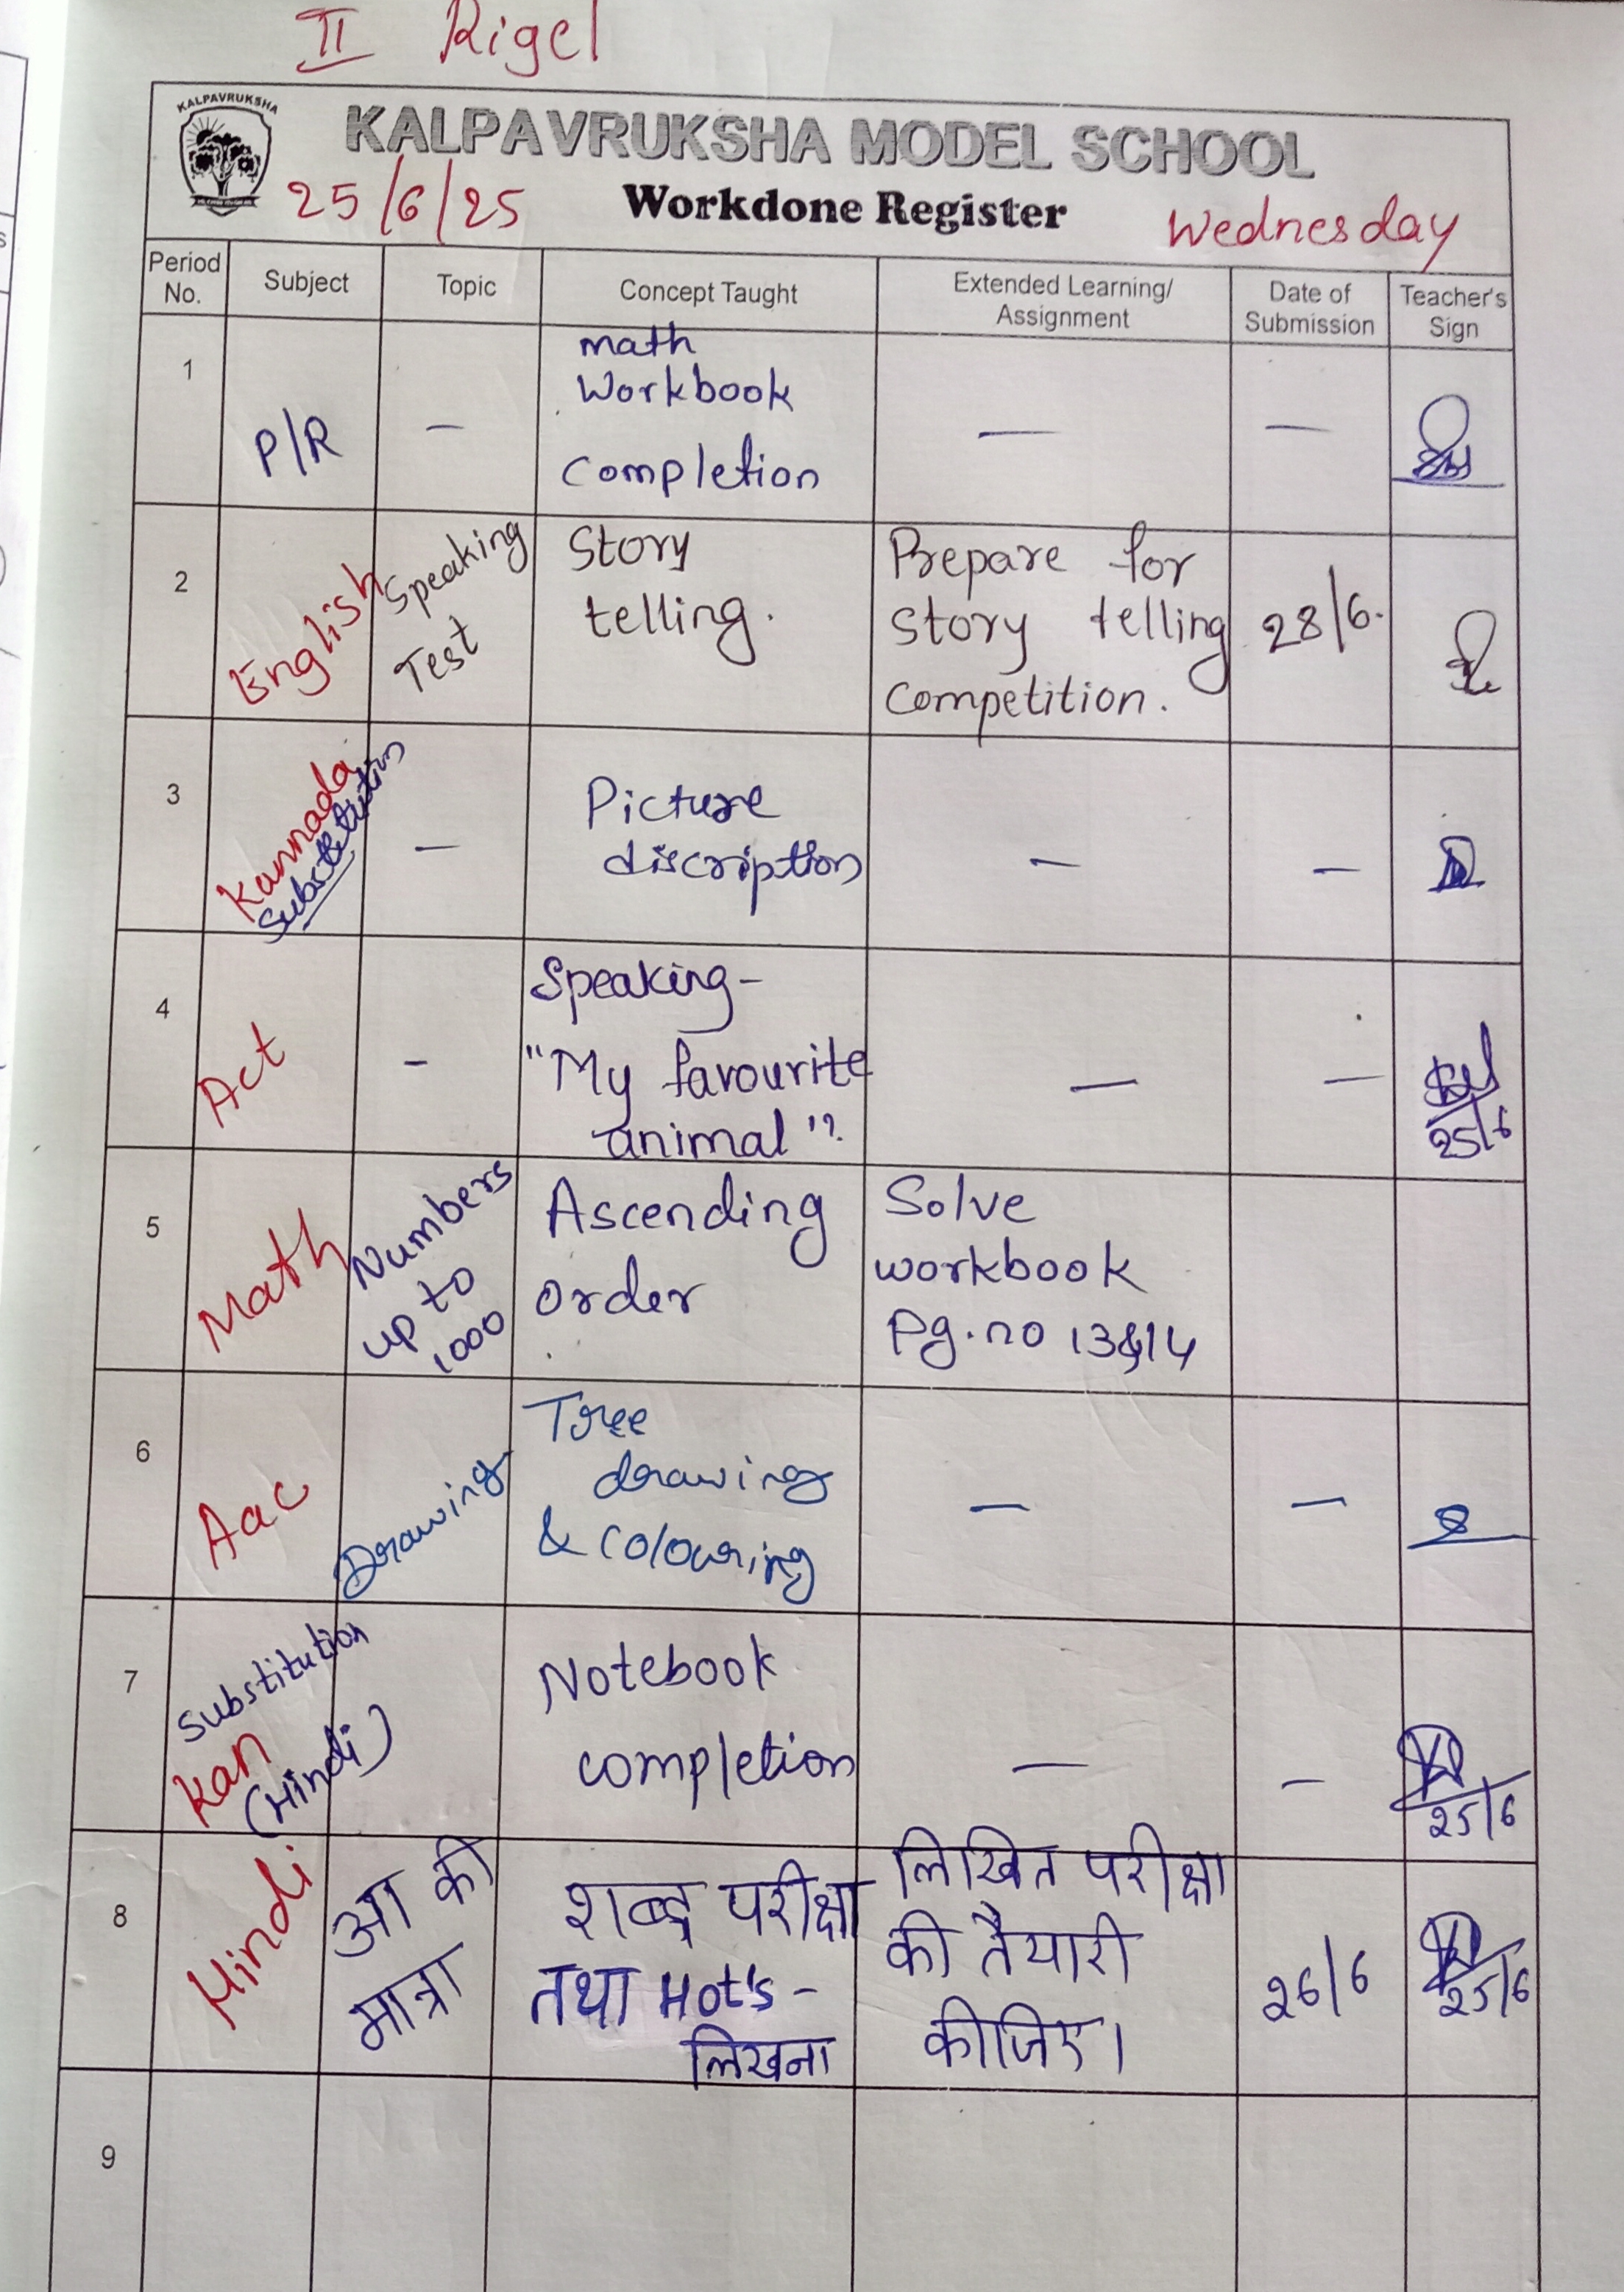 II Rigel
KALPAVRUKSHA
KALPAVRUKSHA MODEL SCHOOL
25/6/25 Workdone Register Wednesday
Period No. Subject Topic Concept Taught Extended Learning/ Assignment Date of Submission Teacher's Sign
1 P/R — math
Workbook
Completion — —
2 English Speaking
Test Story
telling. Prepare for
story telling
competition. 28/6.
3 Kannada
Substitution — Picture
discription — —
4 Act - Speaking-
"My favourite
animal".
— —
25/6
5 Math Numbers
up to
1000 Ascending
order Solve
workbook
Pg.no 13&14
6 Aac Drawing Tree
drawing
& colouring — —
7 Substitution
Kan
(Hindi) Notebook
completion — —
25/6
8 Hindi आ की
मात्रा शब्द परीक्षा
तथा Hot's -
लिखना लिखित परीक्षा
की तैयारी
कीजिए। 26/6
25/6
9